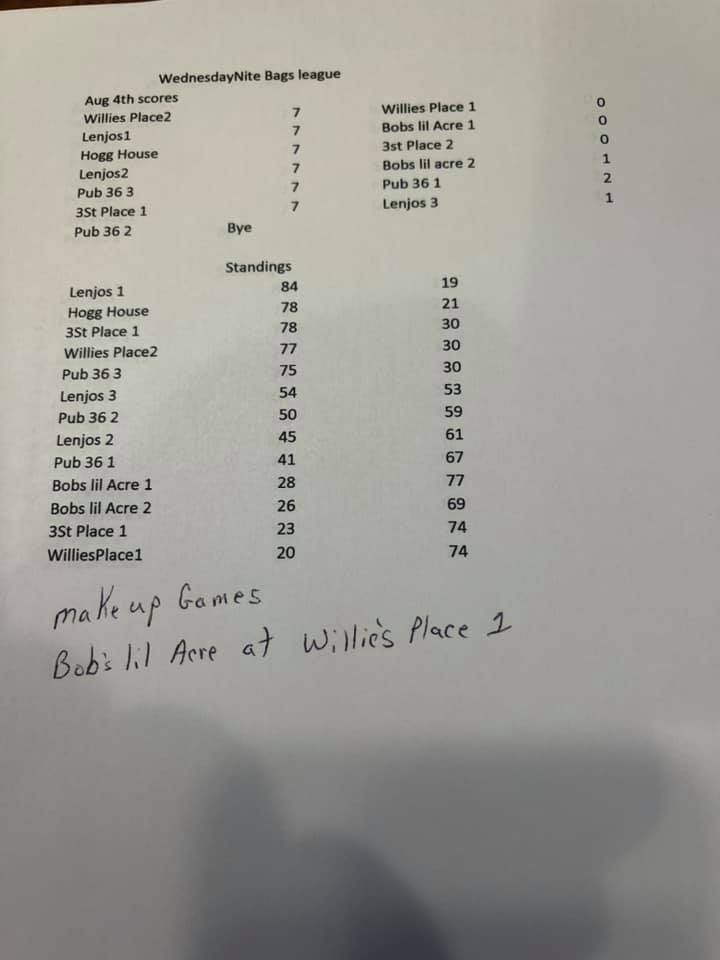 WednesdayNite Bags league
Aug 4th scores
Willies Place2 7 Willies Place 1 0
Lenjos1 7 Bobs lil Acre 1 0
Hogg House 7 3st Place 2 0
Lenjos2 7 Bobs lil acre 2 1
Pub 36 3 7 Pub 36 1 2
3St Place 1 7 Lenjos 3 1
Pub 36 2 Bye
Standings
Lenjos 1 84 19
Hogg House 78 21
3St Place 1 78 30
Willies Place2 77 30
Pub 36 3 75 30
Lenjos 3 54 53
Pub 36 2 50 59
Lenjos 2 45 61
Pub 36 1 41 67
Bobs lil Acre 1 28 77
Bobs lil Acre 2 26 69
3St Place 1 23 74
WilliesPlace1 20 74
make up Games
Bob's lil Acre at Willie's Place 1